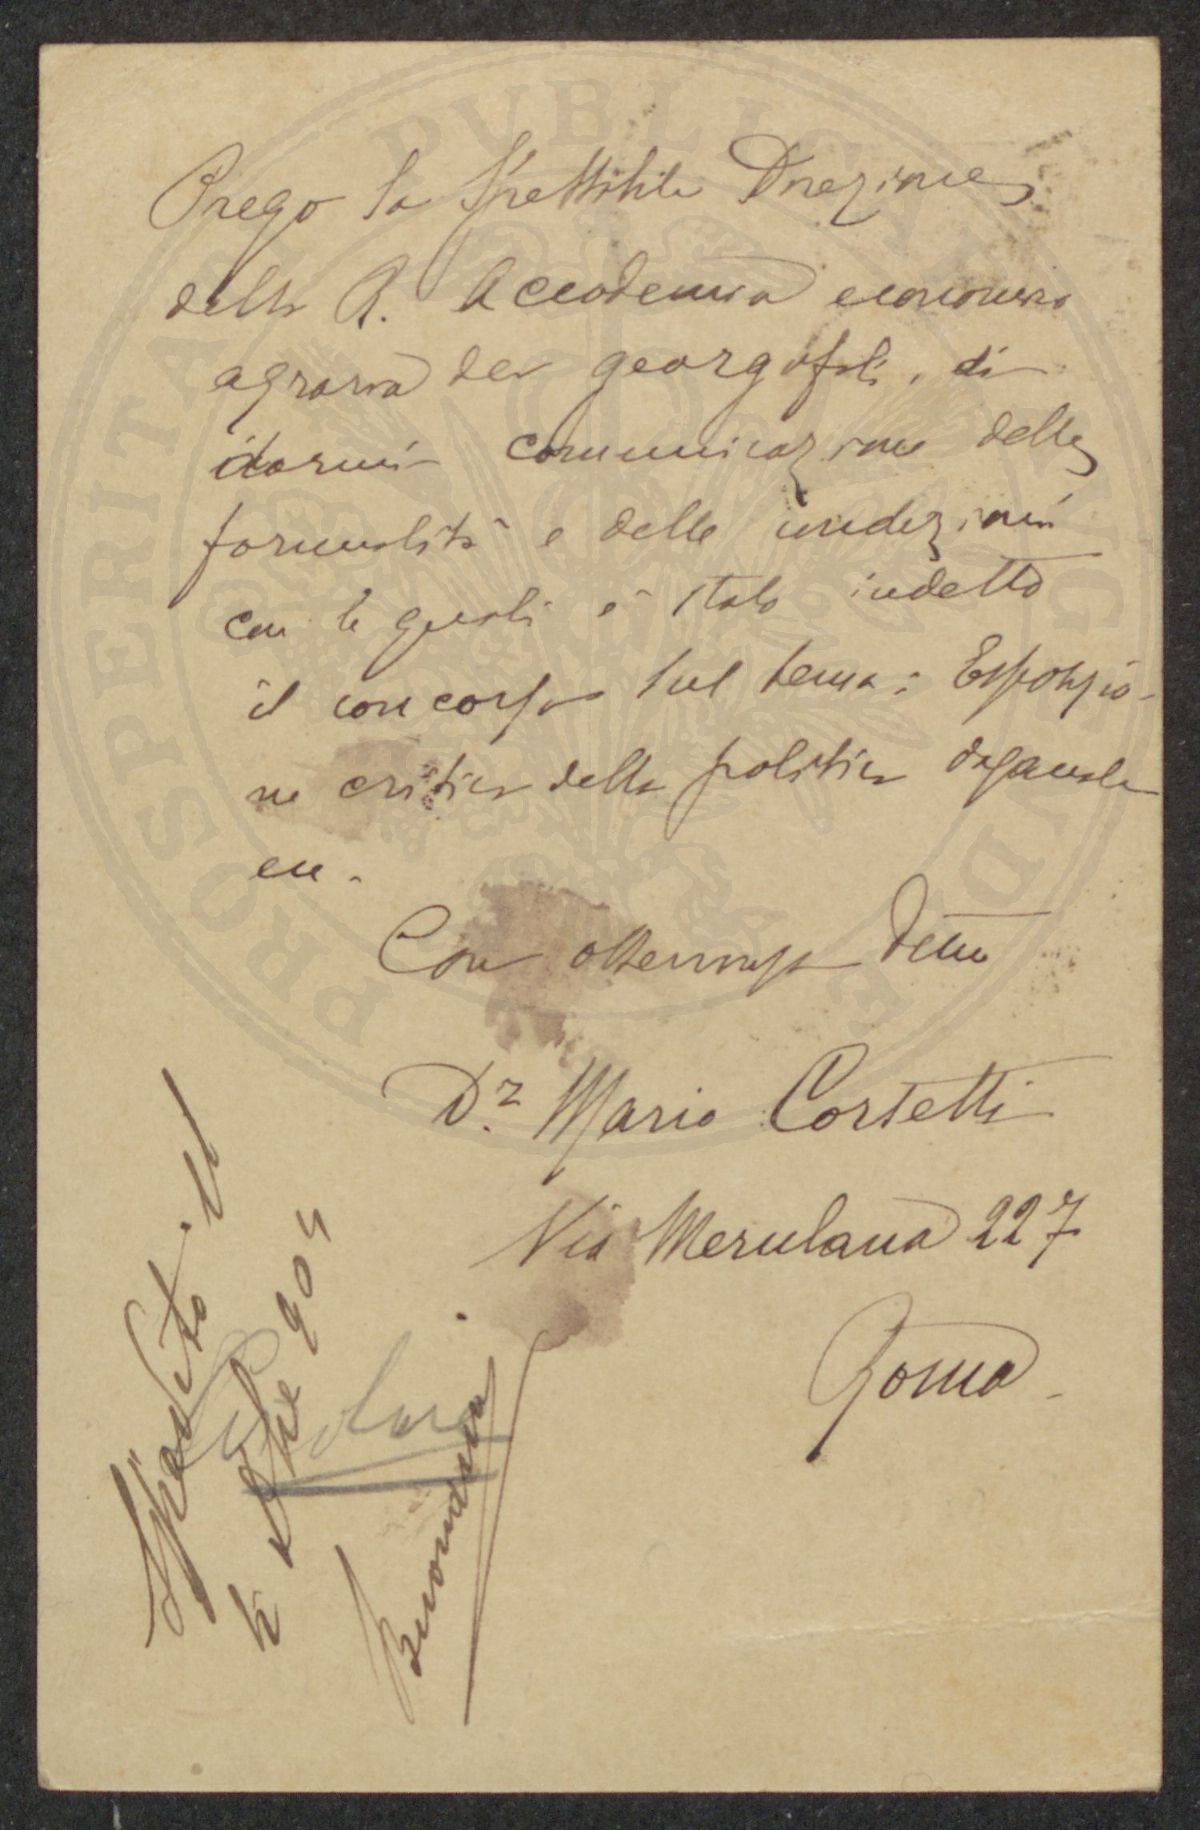 Prego la Spettabile Direzione
della R. Accademia economico
agraria dei georgofili, di
darmi comunicazione delle
formalità e delle condizioni
con le quali è stato indetto
il concorso sul tema: Esposizio-
ne critica della politica doganale
ecc.
Con osservanza Dev.mo
Dr. Mario Cortetti
Via Merulana 227
Roma
Spedito il
904
PUBLICAE
PROSPERITATI